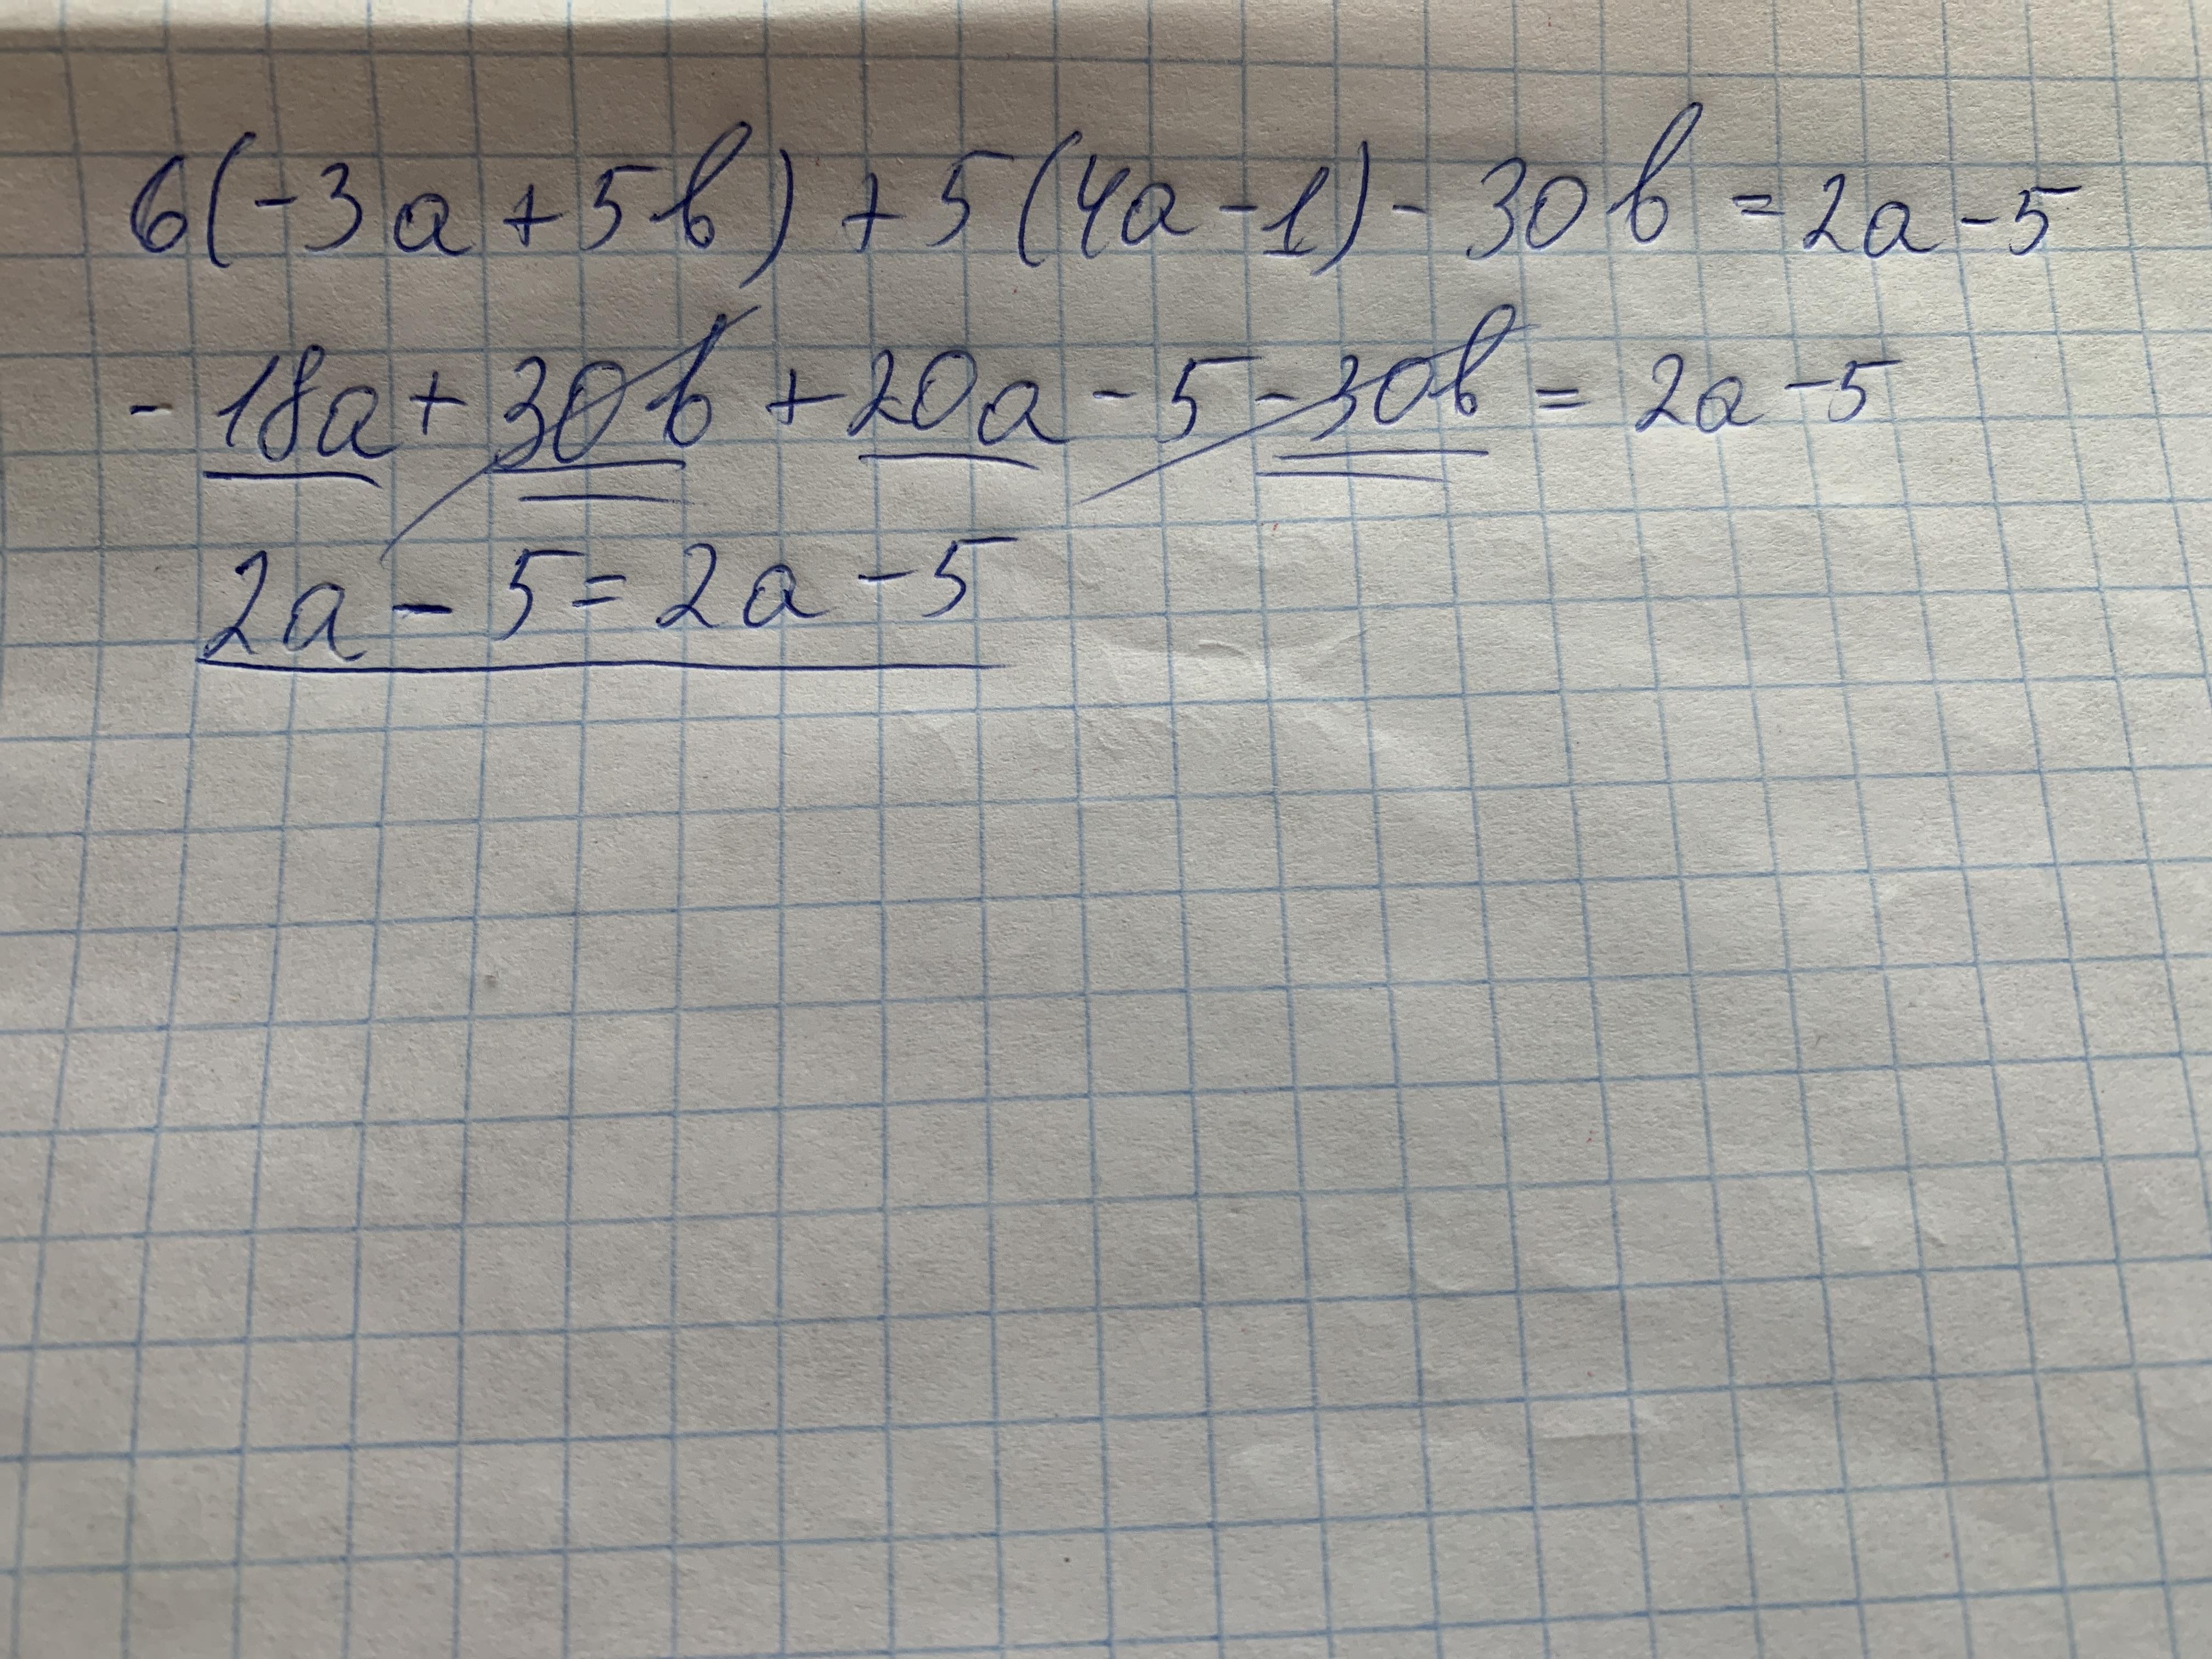 6(-3a+5b)+5(4a-1)-30b=2a-5
-18a+30b+20a-5-30b=2a-5
2a-5=2a-5